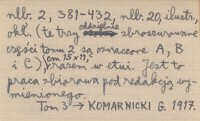 nlb. 2, 381-432, nlb. 20, ilustr.,
okł. (te trzy oddzielnie zbroszurowane
części tomu 2 są oznaczone A, B
i C), cm 15 x 11, razem w etui. Jest to
praca zbiorowa pod redakcją wy-
mienionego.
Tom 3 → KOMARNICKI G. 1917.